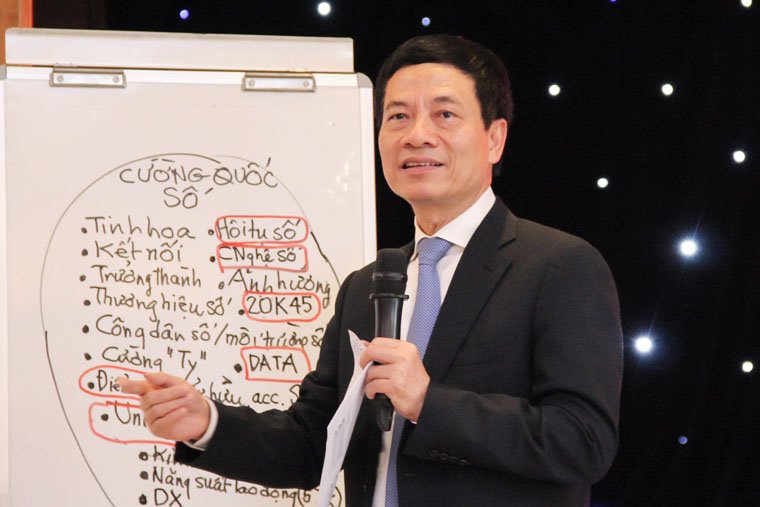 CƯỜNG QUỐC
SỐ
• Tinh hoa • Hội tụ số
• Kết nối • CNghệ số
• Trưởng thành • Ảnh hưởng
• Thương hiệu số • 20K45
• Công dân số / môi trường số
• Cường "Ty" • DATA
hữu acc.
• Năng suất lao động
• DX